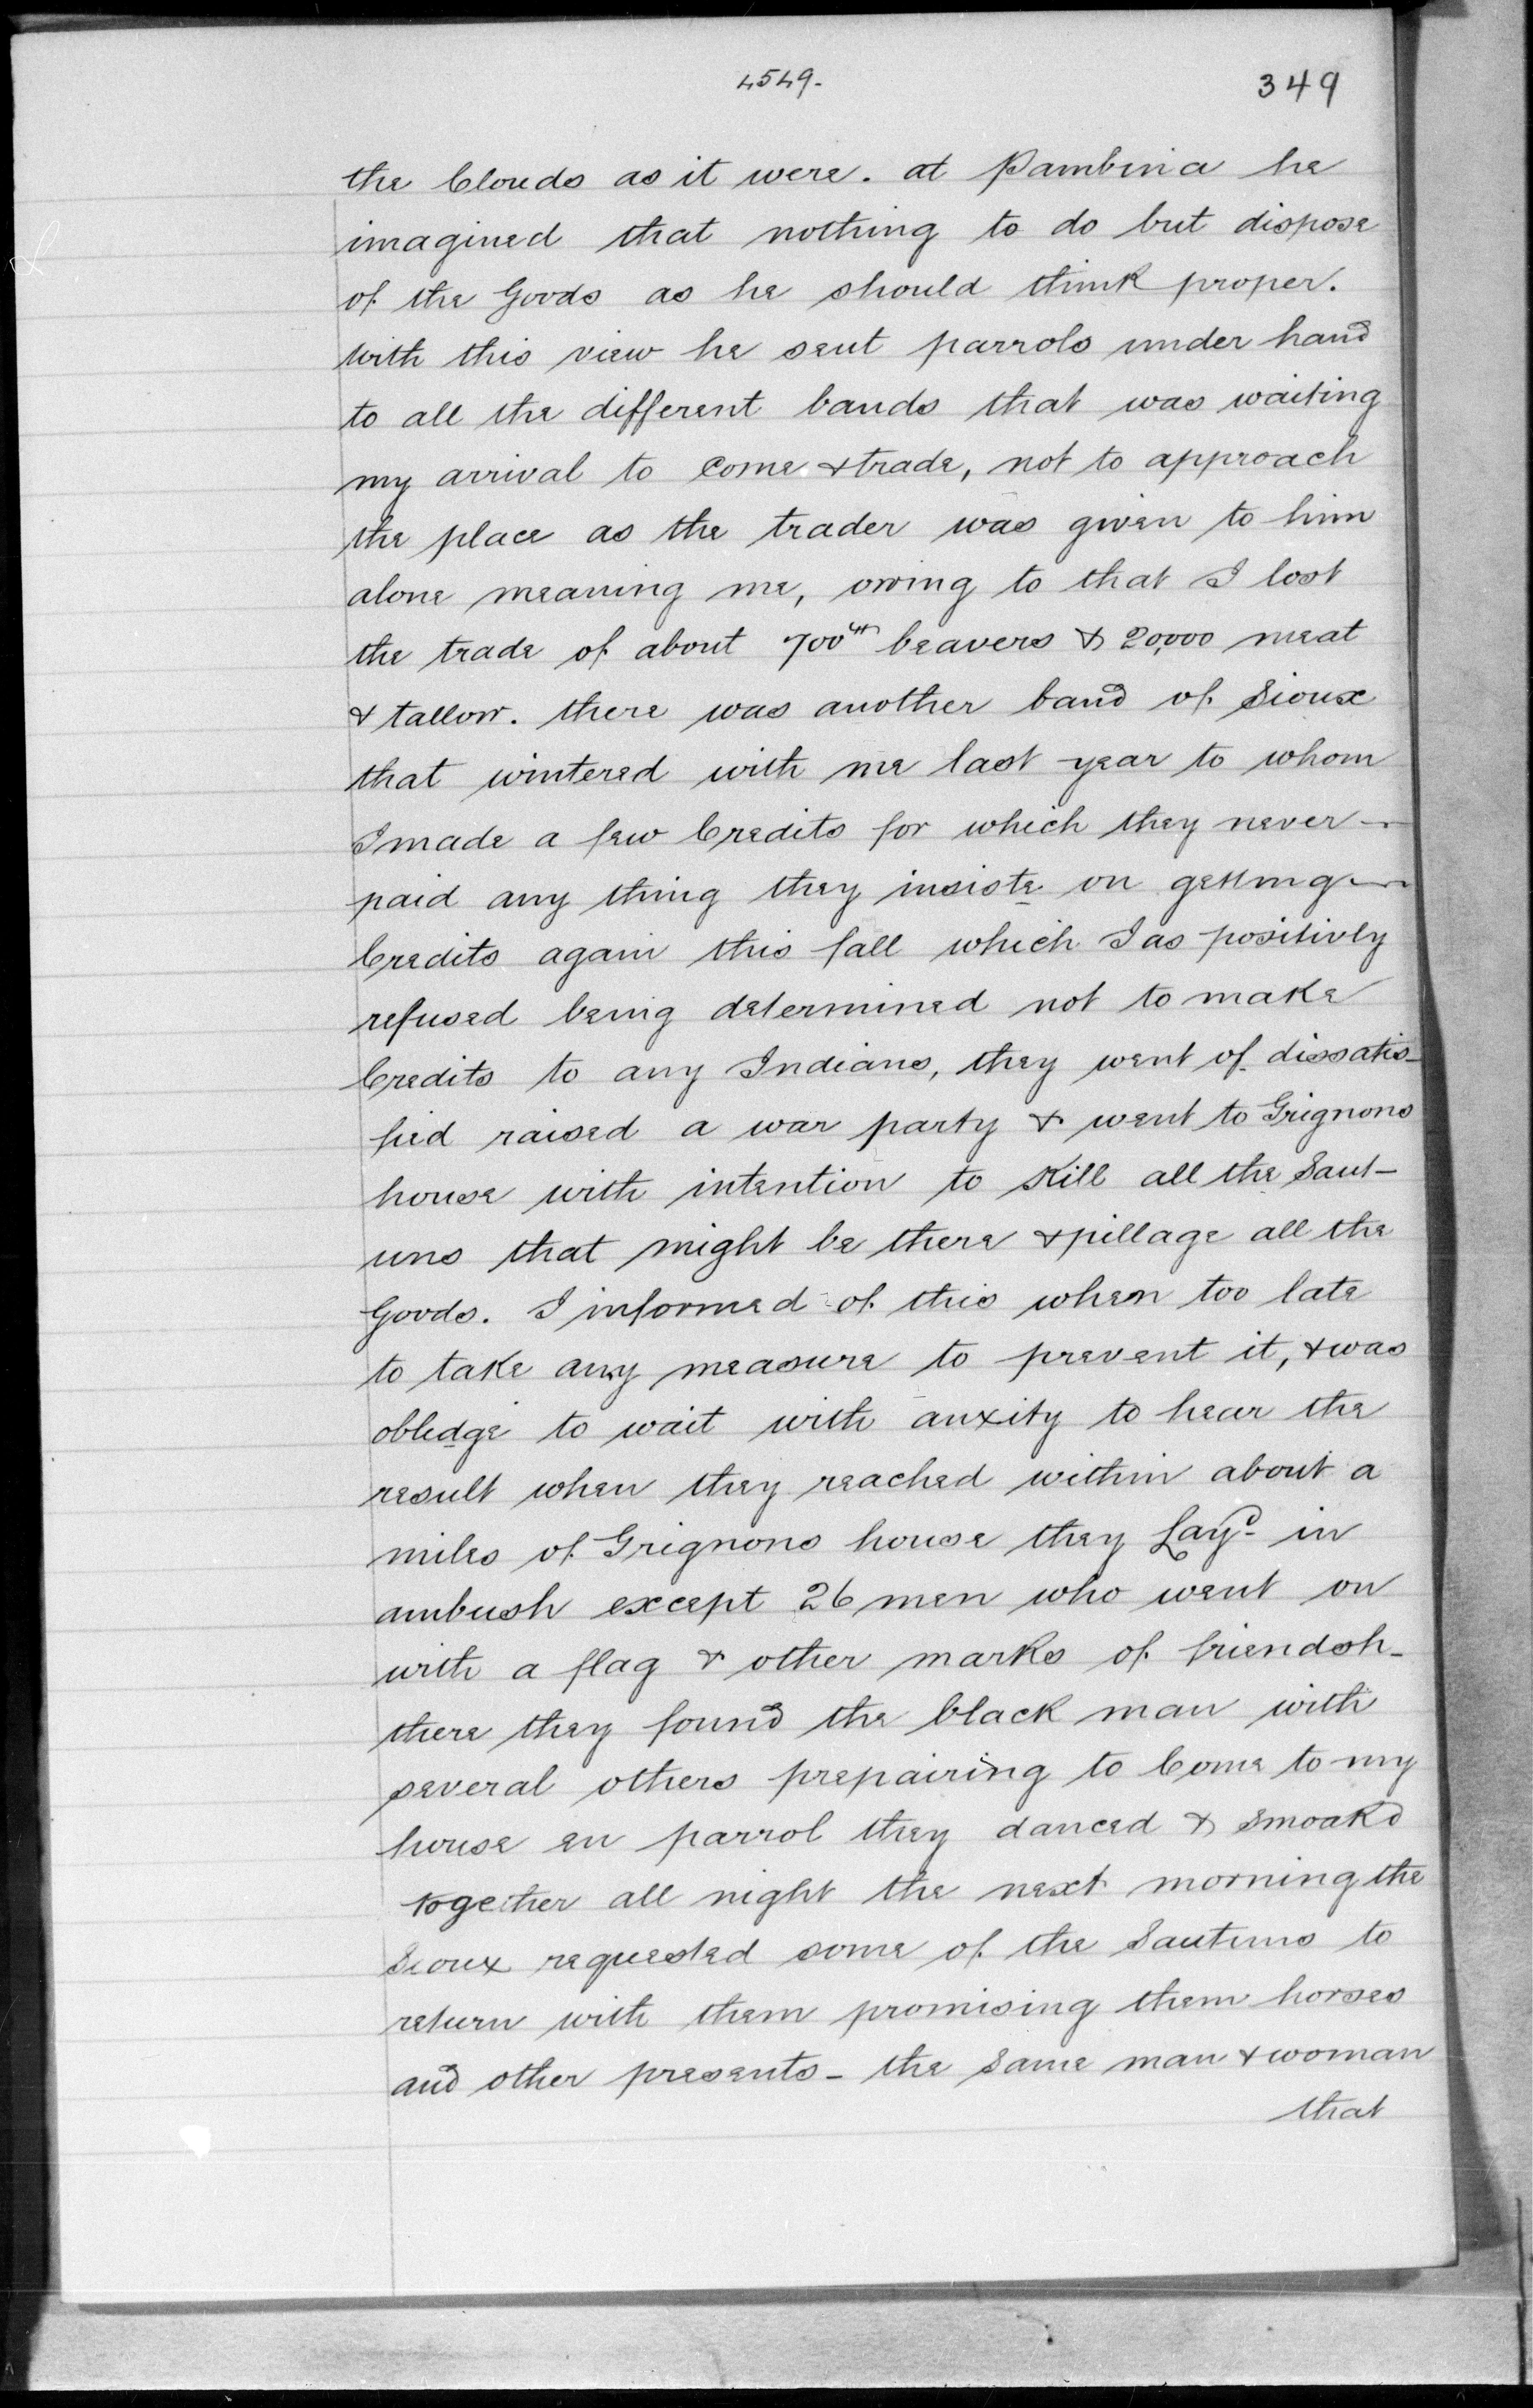 4549.
349
the Clouds as it were. at Pambina he
imagined that nothing to do but dispose
of the Goods as he should think proper.
With this view he sent parrols under hand
to all the different bands that was waiting
my arrival to Come & trade, not to approach
the place as the trader was given to him
alone meaning me, owing to that I lost
the trade of about 700 beavers & 20,000 meat
& tallow. there was another band of Sioux
that wintered with me last year to whom
I made a few Credits for which they never
paid any thing they insiste on getting
Credits again this fall which I as positivly
refused being determined not to make
Credits to any Indians, they went of dissatis-
fied raised a war party & went to Grignons
house with intention to Kill all the Saut-
uns that might be there & pillage all the
Goods. I informed of this when too late
to take any measure to prevent it, & was
obledge to wait with anxity to hear the
result when they reached within about a
miles of Grignons house they Layd in
ambush except 26 men who went on
with a flag & other marks of friendsh-
there they found the black man with
several others prepairing to Come to my
house en parrol they danced & Smoakd
together all night the next morning the
Sioux requested some of the Sautuns to
return with them promising them horses
and other presents - the Same man & woman
that